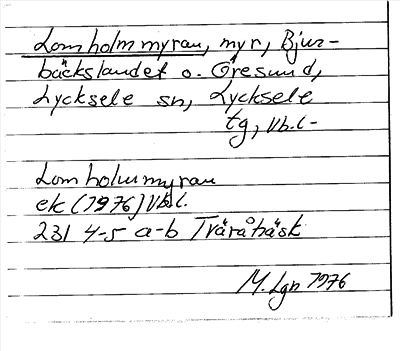 Lomholmmyran, myr, Bjur-
bäckslandet o. Öresund,
Lycksele sn, Lycksele
tg, Vb.l.
Lomholmmyran
ek (1976) Vb.l.
231 4-5 a-b Tväråbäsk
M. Lgn 1976